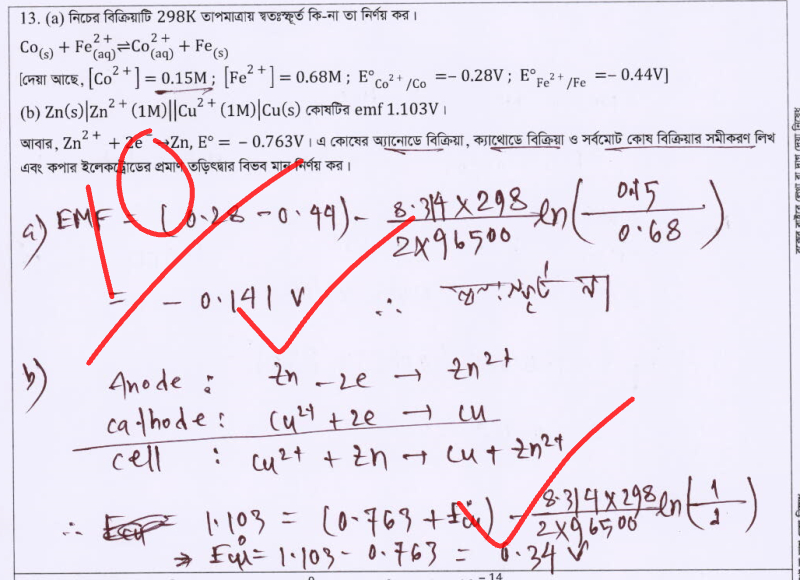 13. (a) নিচের বিক্রিয়াটি 298K তাপমাত্রায় স্বতঃস্ফূর্ত কি-না তা নির্ণয় কর।
Co(s) + Fe²⁺(aq) ⇌ Co²⁺(aq) + Fe(s)
[দেয়া আছে, [Co²⁺] = 0.15M ; [Fe²⁺] = 0.68M ; E°Co²⁺/Co = – 0.28V ; E°Fe²⁺/Fe = – 0.44V]
(b) Zn(s)|Zn²⁺(1M)||Cu²⁺(1M)|Cu(s) কোষটির emf 1.103V।
আবার, Zn²⁺ + 2e⁻ → Zn, E° = – 0.763V। এ কোষের অ্যানোডে বিক্রিয়া, ক্যাথোডে বিক্রিয়া ও সর্বমোট কোষ বিক্রিয়ার সমীকরণ লিখ
এবং কপার ইলেকট্রোডের প্রমাণ তড়িৎদ্বার বিভব মান নির্ণয় কর।
a) EMF = (0.28 – 0.44) – 8.314×298/2×96500 ln(0.15/0.68)
= – 0.141 V ∴ স্বতঃস্ফূর্ত না
b) Anode : Zn – 2e → Zn²⁺
cathode : Cu²⁺ + 2e → Cu
cell : Cu²⁺ + Zn → Cu + Zn²⁺
∴ 1.103 = (0.763 + E°Cu) – 8.314×298/2×96500 ln(1/1)
⇒ E°Cu = 1.103 – 0.763 = 0.34 V
–14